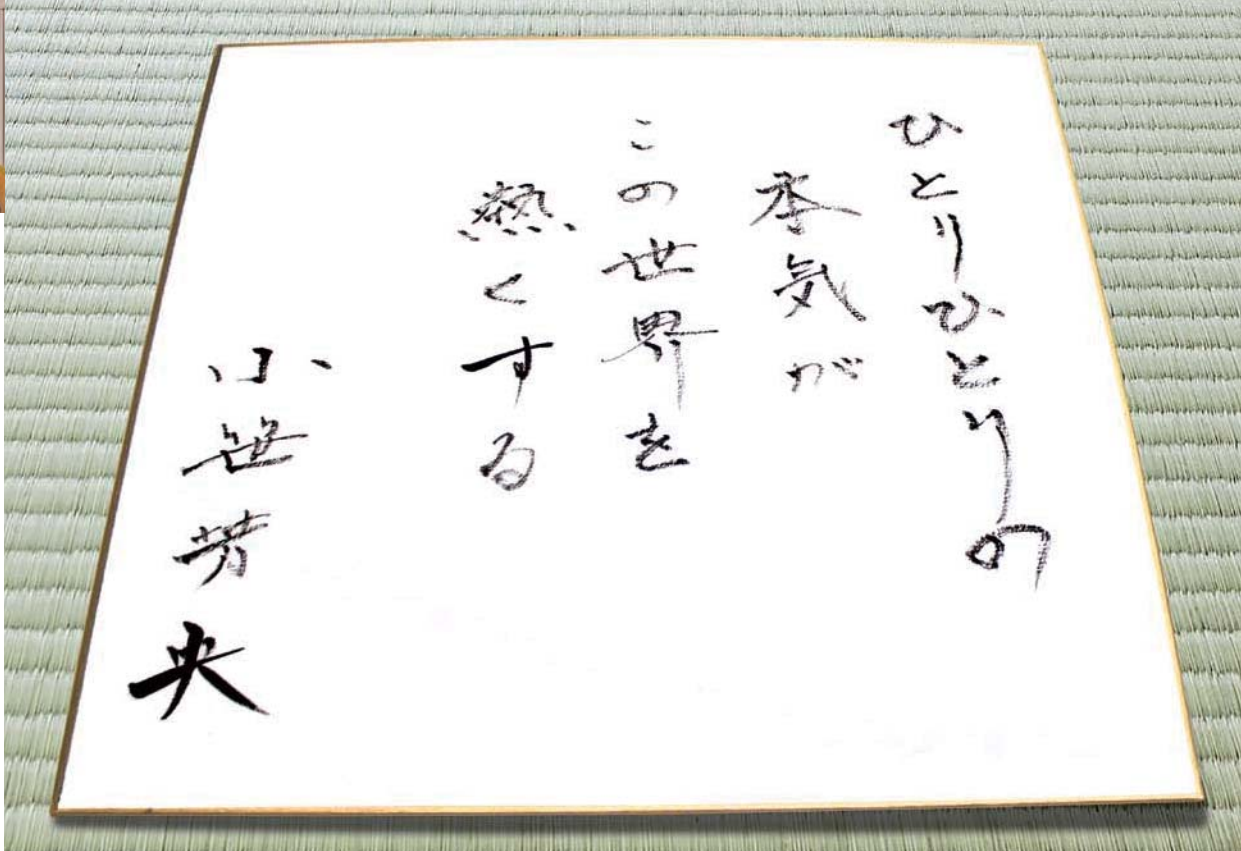 ひとりひとりの
本気が
この世界を
熱くする
小笹芳央